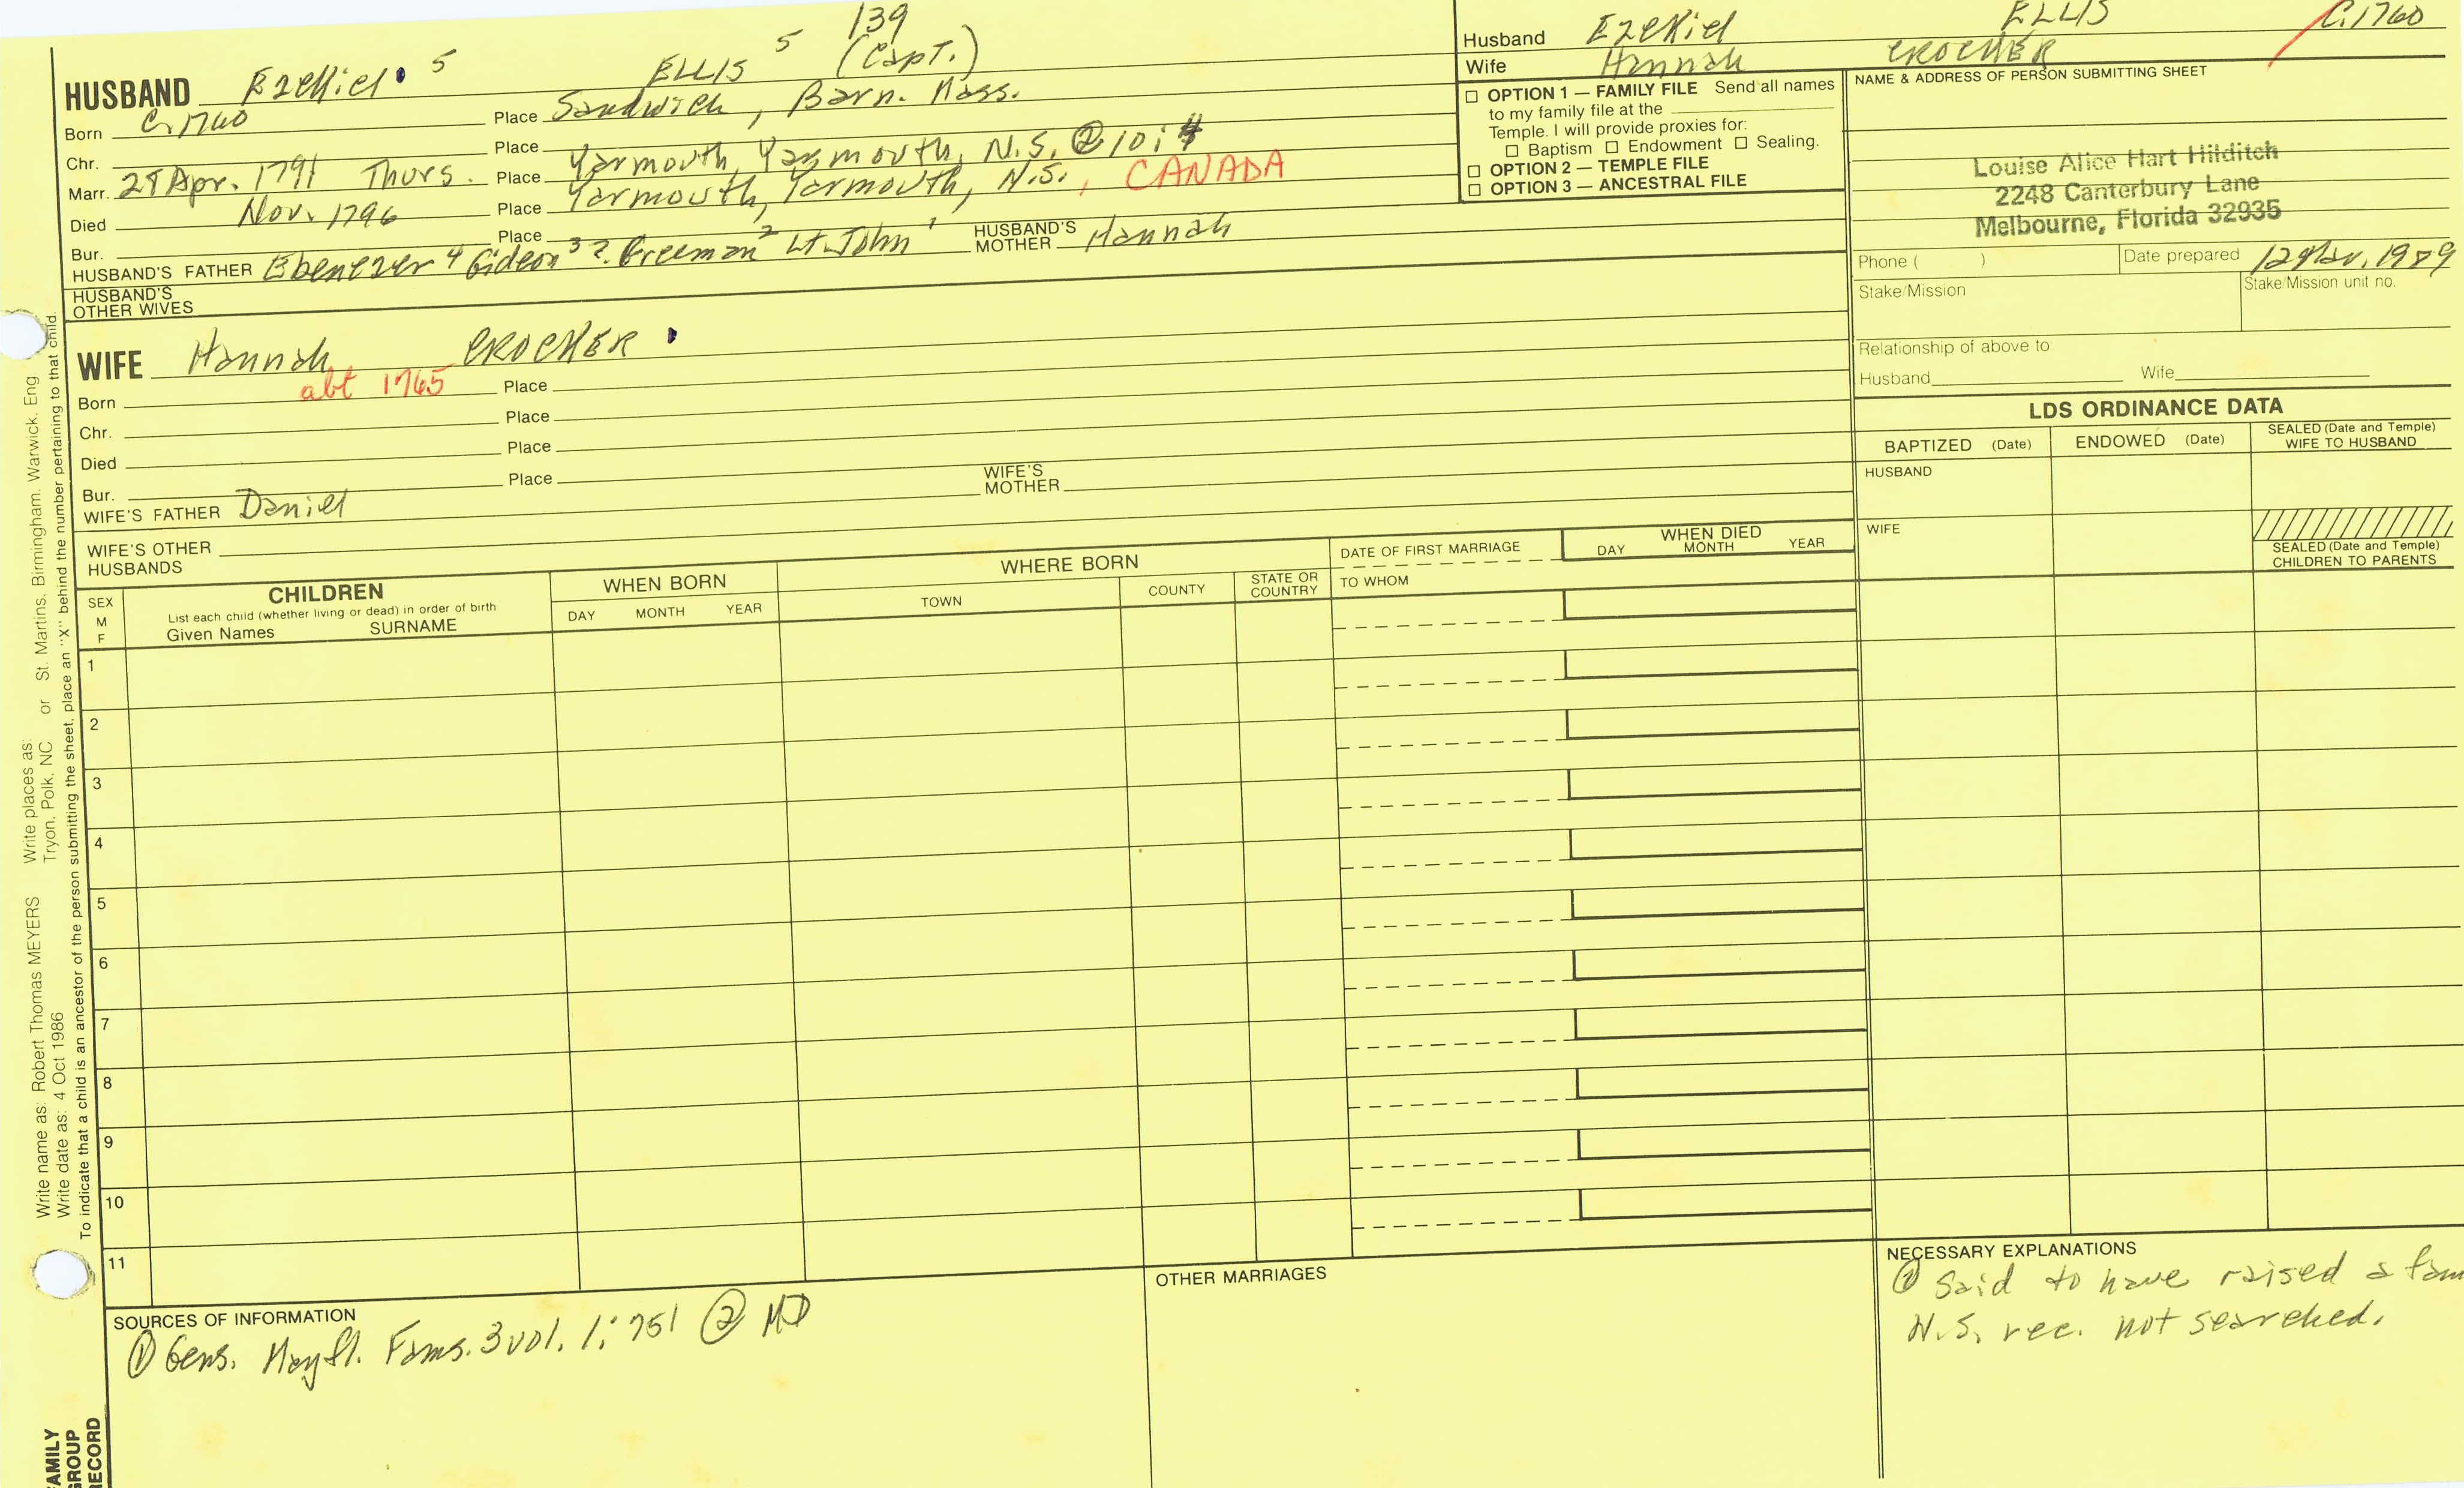 139
HUSBAND Ezekiel 5 ELLIS 5 (Capt.)
Born C. 1760 Place Sandwich, Barn. Mass.
Chr. Place
Marr. Apr. 1791 Thurs. Place Yarmouth, Yarmouth, N.S. @ 10:4
Died Nov. 1796 Place Yarmouth, Yarmouth, N.S., CANADA
Bur. Place
HUSBAND'S FATHER Ebenezer 4 Gideon 3 ?. Freeman 2 Lt. John 1 HUSBAND'S MOTHER Hannah
HUSBAND'S OTHER WIVES
WIFE Hannah CROCKER
Born abt 1765 Place
Chr. Place
Died Place
Bur. Place
WIFE'S FATHER Daniel WIFE'S MOTHER
WIFE'S OTHER HUSBANDS
Husband Ezekiel ELLIS C. 1760
Wife Hannah CROCKER
☐ OPTION 1 — FAMILY FILE Send all names
to my family file at the
Temple. I will provide proxies for:
☐ Baptism ☐ Endowment ☐ Sealing.
☐ OPTION 2 — TEMPLE FILE
☐ OPTION 3 — ANCESTRAL FILE
NAME & ADDRESS OF PERSON SUBMITTING SHEET
Louise Alice Hart Hilditch
2248 Canterbury Lane
Melbourne, Florida 32935
Phone ( ) Date prepared 12 Mar. 1989
Stake/Mission Stake/Mission unit no.
Relationship of above to
Husband Wife
LDS ORDINANCE DATA
BAPTIZED (Date) ENDOWED (Date) SEALED (Date and Temple) WIFE TO HUSBAND
HUSBAND
WIFE
SEALED (Date and Temple)
CHILDREN TO PARENTS
SEX
M
F
CHILDREN
List each child (whether living or dead) in order of birth
Given Names SURNAME
WHEN BORN
DAY MONTH YEAR
WHERE BORN
TOWN COUNTY STATE OR COUNTRY
DATE OF FIRST MARRIAGE
TO WHOM
WHEN DIED
DAY MONTH YEAR
1
2
3
4
5
6
7
8
9
10
11
SOURCES OF INFORMATION
① Gens. Mayfl. Fams. 3 vol. 1:751 ② MD
OTHER MARRIAGES
NECESSARY EXPLANATIONS
① Said to have raised a fam
N.S. rec. not searched.
Write name as: Robert Thomas MEYERS Write places as: Tryon, Polk, NC or St. Martins, Birmingham, Warwick, Eng
Write date as: 4 Oct 1986
To indicate that a child is an ancestor of the person submitting the sheet, place an "X" behind the number pertaining to that child.
FAMILY
GROUP
RECORD